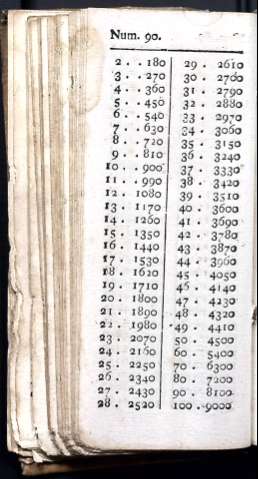 Num. 90.
2 . . 180
3 . . 270
4 . . 360
5 . . 450
6 . . 540
7 . . 630
8 . . 720
9 . . 810
10 . . 900
11 . . 990
12 . 1080
13 . 1170
14 . 1260
15 . 1350
16 . 1440
17 . 1530
18 . 1620
19 . 1710
20 . 1800
21 . 1890
22 . 1980
23 . 2070
24 . 2160
25 . 2250
26 . 2340
27 . 2430
28 . 2520
29 . 2610
30 . 2760
31 . 2790
32 . 2880
33 . 2970
34 . 3060
35 . 3150
36 . 3240
37 . 3330
38 . 3420
39 . 3510
40 . 3600
41 . 3690
42 . 3780
43 . 3870
44 . 3960
45 . 4050
46 . 4140
47 . 4230
48 . 4320
49 . 4410
50 . 4500
60 . 5400
70 . 6300
80 . 7200
90 . 8100
100 . 9000